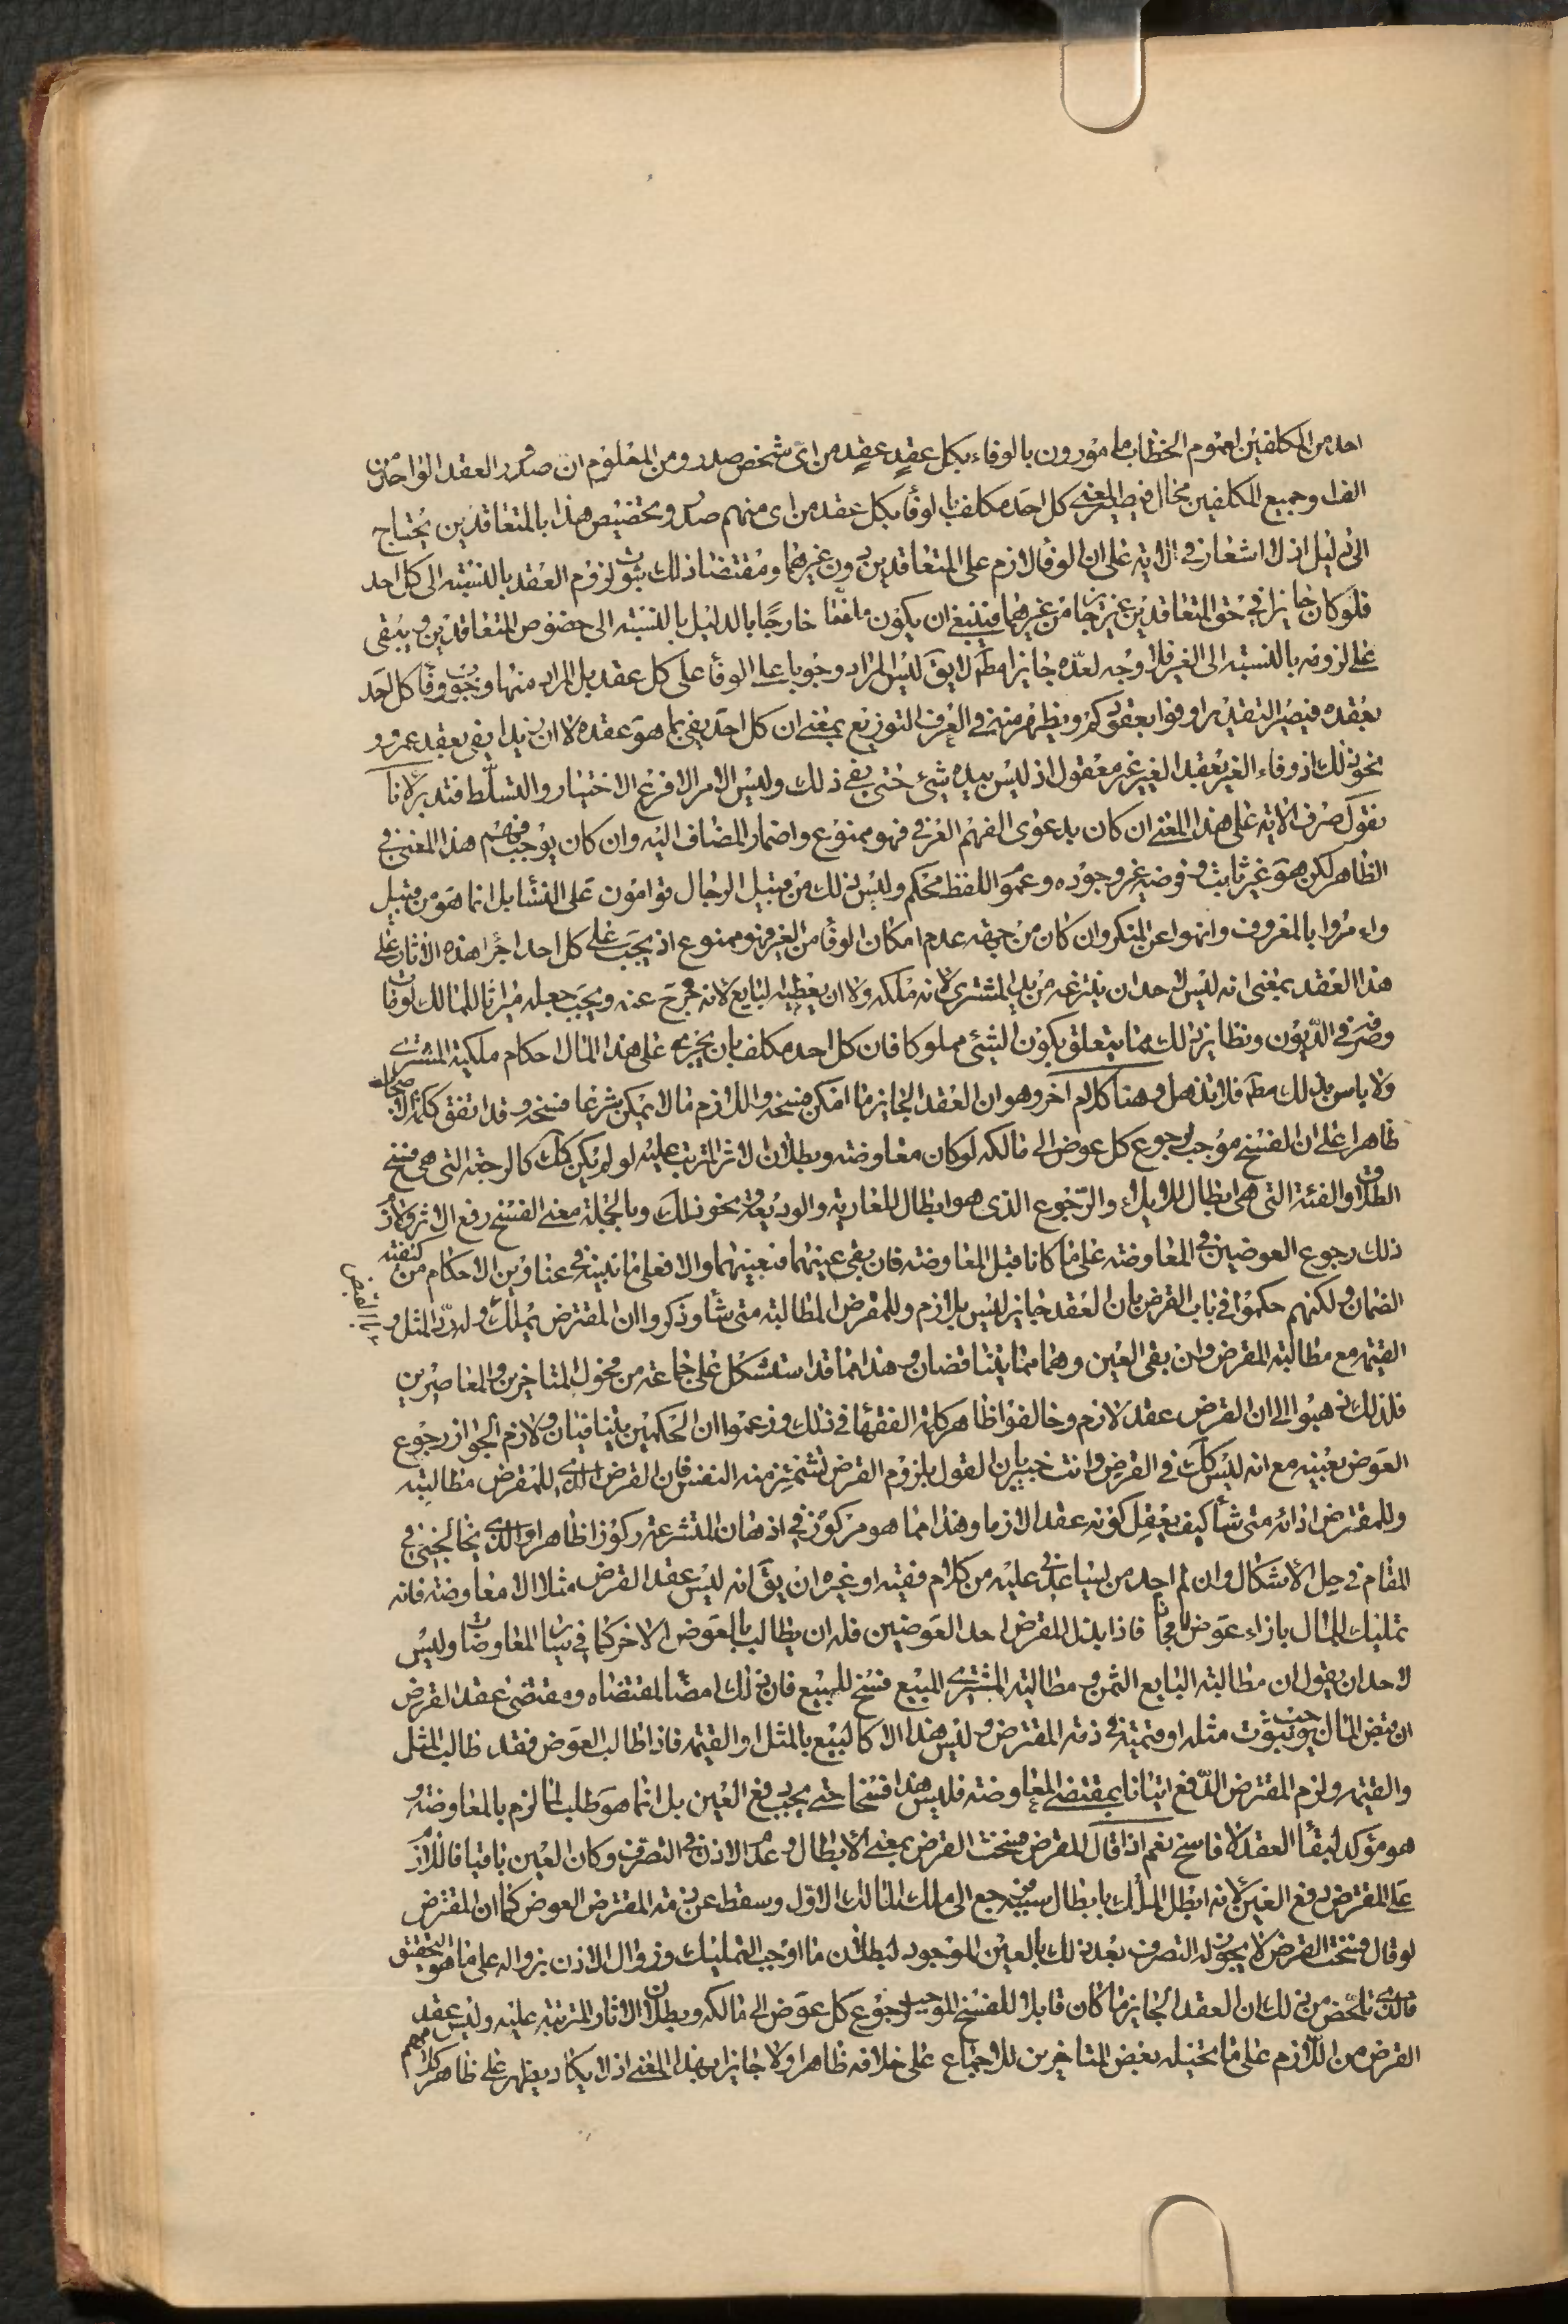 احد من المكلفين لعموم الخطاب مامورون بالوفاء بكل عقدٍ عقدٍ من اى شخص صدر ومن المعلوم ان صدور العقد الواحد من
الف او جميع المكلفين محال فيصير المعنى كل احد مكلف بالوفاء بكل عقد من اى منهم صدر وتخصيص هذا بالمتعاقدين يحتاج
الى دليل اذ لا اشعار فى الاية على ان الوفاء لازم على المتعاقدين دون غيرهما ومقتضا ذلك ثبوت لزوم العقد بالنسبة الى كل احد
فلو كان جايزا فى حق المتعاقدين غير جايز من غيرهما فينبغى ان يكون خارجًا بالدليل بالنسبة الى خصوص المتعاقدين ويبقى
على لزومه بالنسبة الى الغير فلا وجه لعدّه جايزا مطم لا يق ليس المراد وجوب الوفاء على كل عقد بل المراد منها وجوب وفاء كل احد
بعقده فيصير التقدير اوفوا بعقودكم ويظهر منه فى العرف التوزيع بمعنى ان كل احد يفى بما هو عقده لا ان زيدا يفى بعقد عمرو و
نحو ذلك اذ وفاء الغير بعقد الغير غير معقول اذ ليس بيده شيئ حتى يفى ذلك وليس الامر الا فرع الاختيار والتسلّط فتدبر لانا
نقول صرف الاية على هذا المعنى ان كان بدعوى الفهم العرفى فهو ممنوع واضمار المضاف اليه وان كان يوجب فهم هذا المعنى فى
الظاهر لكن هو غير ثابث وفرضه غير وجوده وعموم اللفظ محكم وليس ذلك من قبيل الرجال قوامون على النسآء بل انما هو من قبيل
وامروا بالمعروف وانهوا عن المنكر وان كان من جهة عدم امكان الوفاء من الغير فهو ممنوع اذ يجب على كل احد اجراء هذه الاثار على
هذا العقد بمعنى انه ليس لاحد ان ينتزعه من يد المشترى لانه ملكه ولا ان يعطيه البايع لانه خرج عنه ويجب جعله ميراثا للمالك لو مات
وصرفه فى الدّيون ونظاير ذلك مما يتعلق بكون الشئ مملوكا فان كل احد مكلف بان يجرى على هذا المال احكام ملكية المشترى
ولا باس بذلك مطم فلا تذهل وهنا كلام آخر وهو ان العقد الجايز ما امكن فسخه واللازم ما لا يمكن شرعا فسخه وقد اتفق كلمة الاصحاب
ظاهرا على ان الفسخ موجب لرجوع كل عوض الى مالكه لو كان معاوضة وبطلان الاثر المترتب عليه لو لم يكن كك كالرجعة التى هى فسخ
الطلاق والفئة التى هى ابطال للايلاء والرّجوع الذى هو ابطال للعارية والوديعة ونحو ذلك وبالجملة معنى الفسخ رفع الاثر ولازم
ذلك رجوع العوضين فى المعاوضة على ما كانا قبل المعاوضة فان بقى عينهما فبعينهما والا فعلى ما نبينه فى عناوين الاحكام من كيفية
الضمان ولكنهم حكموا فى باب القرض بان العقد جايز ليس بلازم وللمقرض المطالبة متى شاء وذكروا ان المقترض يملك وله ردّ المثل و
بالقبض
القيمة مع مطالبة المقرض وان بقى العين وهما مما يتناقضان وهذا مما قد استشكل على جماعة من فحول المتاخرين والمعاصرين
فلذلك ذهبوا الى ان القرض عقد لازم وخالفوا ظاهر كلمة الفقهاء فى ذلك وزعموا ان الحكمين يتنافيان ولازم الجواز رجوع
العوض بعينه مع انه ليس كك فى القرض وانت خبير بان القول بلزوم القرض تشمئز منه النفس فان القرض الذى للمقرض مطالبته
وللمقترض ادائه متى شاء كيف يعقل كونه عقدا لازما وهذا مما هو مركوز فى اذهان المتشرعة ركوزا ظاهرا والذى يتخالجنى فى
المقام فى حل الاشكال وان لم اجد من يساعدنى عليه من كلام فقيه او غيره ان يق انه ليس عقد القرض مثلا الا معاوضة فانه
تمليك للمال بازاء عوض لا مجانا فاذا بذل المقرض احد العوضين فله ان يطالب بالعوض الاخر كما فى ساير المعاوضات وليس
لاحد ان يقول ان مطالبة البايع الثمن ومطالبة المشترى المبيع فسخ للبيع فان ذلك امضاء لمقتضاه ومقتضى عقد القرض
ان قبض المال يوجب ثبوت مثله او قيمته فى ذمة المقترض وليس هذا الا كالبيع بالمثل او القيمة فاذا طالب العوض فقد طالب المثل
والقيمة ولزم المقترض الدّفع اتيانا بمقتضى المعاوضة فليس هذا فسخا حتى يجب دفع العين بل انما هو طلب لما لزم بالمعاوضة و
هو مؤكد لبقاء العقد لا فاسخ نعم اذا قال المقرض فسخت القرض بمعنى الابطال وعدم الاذن فى التصرف وكان العين باقيا فاللازم
على المقترض دفع العين لانه ابطل الملك بابطال سببه فرجع الى ملك المالك الاول وسقط عن ذمة المقترض العوض كما ان المقترض
لو قال فسخت القرض لا يجوز له التصرف بعد ذلك بالعين الموجود لبطلان ما اوجب التمليك وزوال الاذن بزواله على ما هو التحقيق
فالذى تلخص من ذلك ان العقد الجايز ما كان قابلا للفسخ الموجب لرجوع كل عوض الى مالكه وبطلان الاثار المترتبة عليه وليس عقد
القرض من اللازم على ما تخيله بعض المتاخرين للاجماع على خلافه ظاهرا ولا جايزا بهذا المعنى اذ لا يكاد يظهر على ظاهر كلامهم